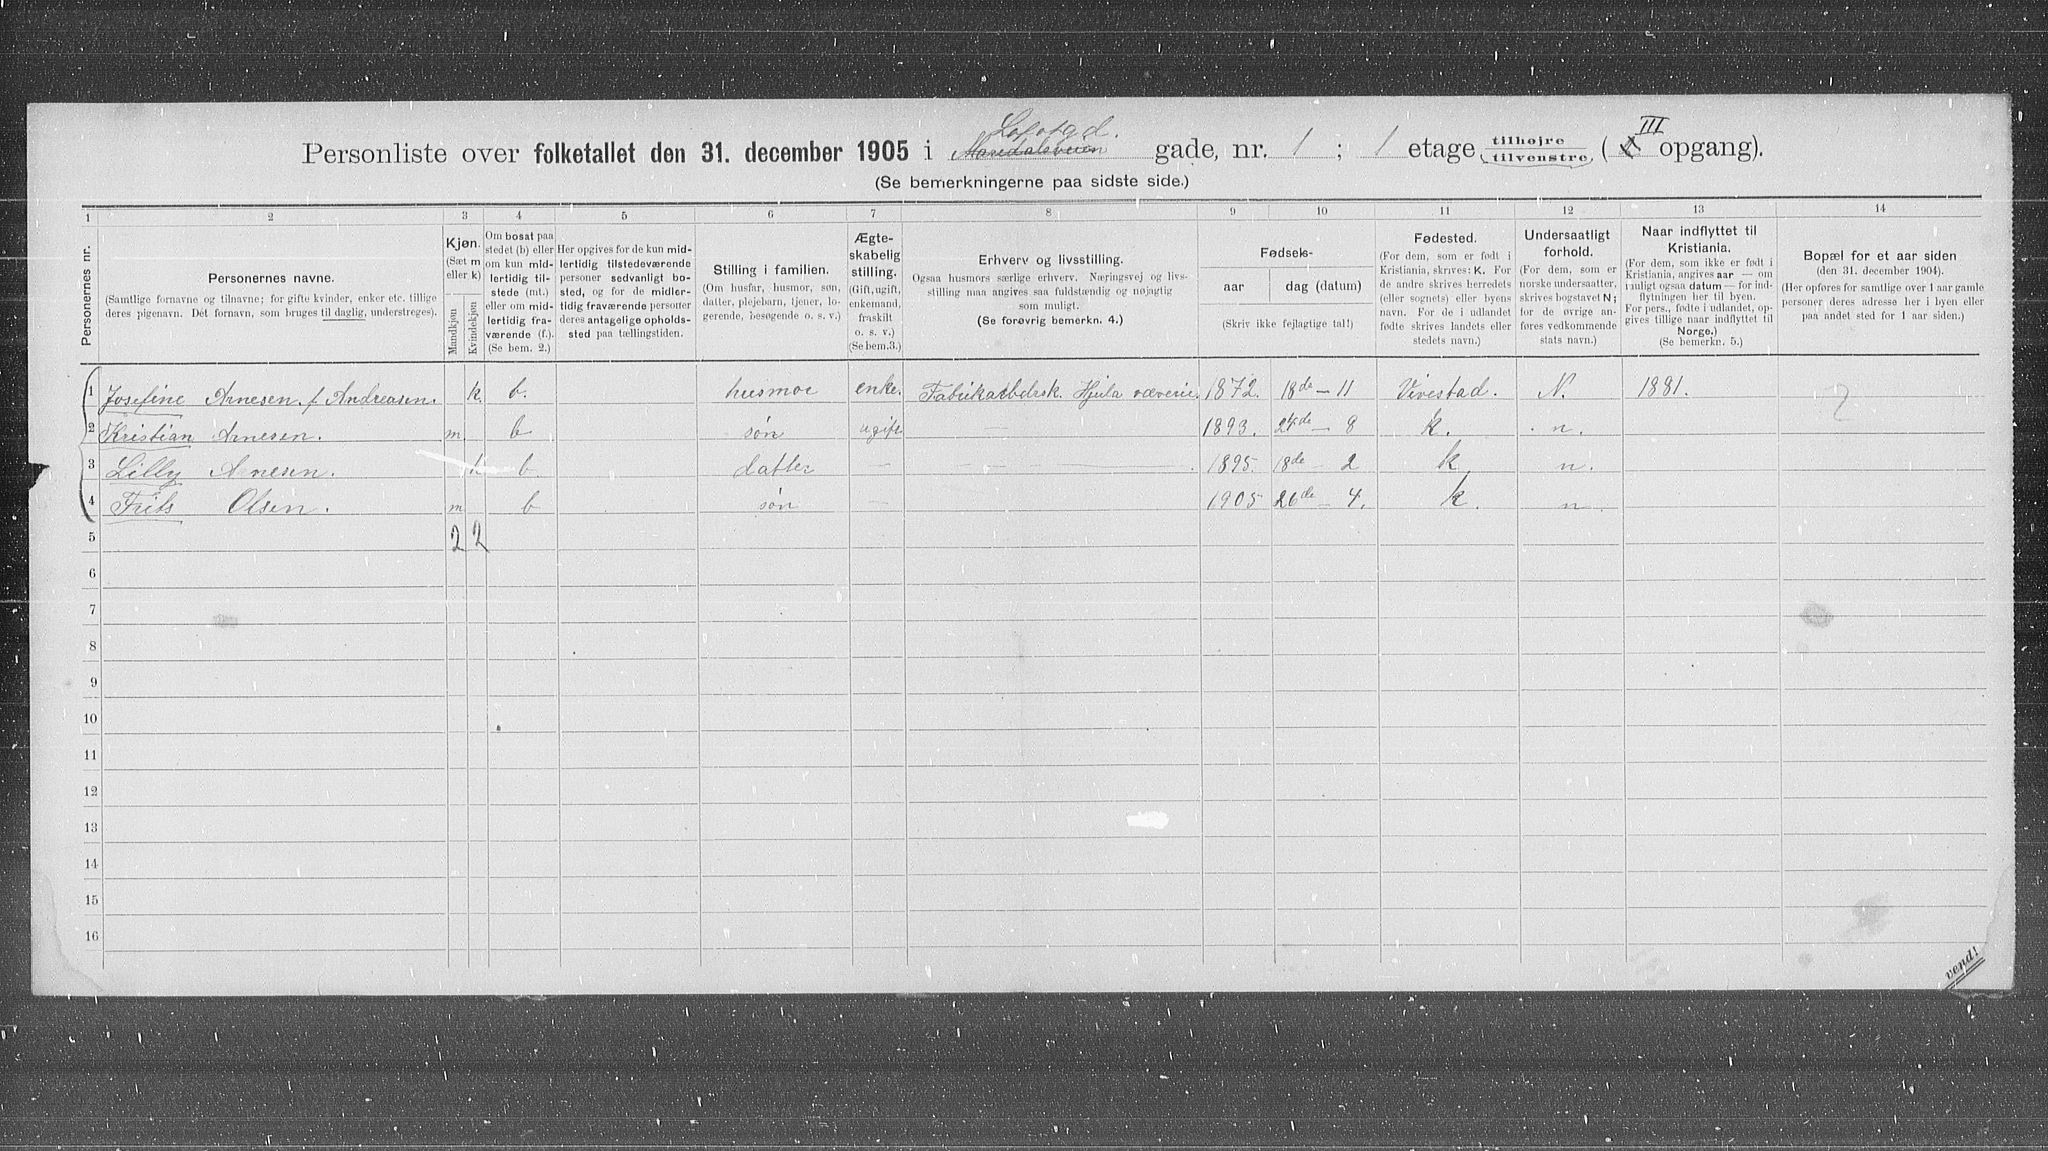 Personliste over folketallet den 31. december 1905 i Maridalsveien Lofotgd. gade, nr. 1 ; 1 etage tilhøjre tilvenstre ( X III opgang).
(Se bemerkningerne paa sidste side.)
1 2 3 4 5 6 7 8 9 10 11 12 13 14
Personernes nr.
Personernes navne.
(Samtlige fornavne og tilnavne; for gifte kvinder, enker etc. tillige
deres pigenavn. Det fornavn, som bruges til daglig, understreges).
Kjøn.
(Sæt m
eller k)
Mandkjøn
Kvindekjøn
Om bosat paa
stedet (b) eller
om kun mid-
lertidig til-
stede (mt.)
eller om mid-
lertidig fra-
værende (f.).
(Se bem. 2.)
Her opgives for de kun mid-
lertidig tilstedeværende
personer sedvanligt bo-
sted, og for de midler-
tidig fraværende personer
deres antagelige opholds-
sted paa tællingstiden.
Stilling i familien.
(Om husfar, husmor, søn,
datter, plejebarn, tjener, lo-
gerende, besøgende o. s. v.)
Ægte-
skabelig
stilling.
(Gift, ugift,
enkemand,
fraskilt
o. s. v.)
(Se bem.3.)
Erhverv og livsstilling.
Ogsaa husmors særlige erhverv. Næringsvej og livs-
stilling maa angives saa fuldstændig og nøjagtig
som muligt.
(Se forøvrig bemerkn. 4.)
Fødsels-
aar
dag (datum)
(Skriv ikke fejlagtige tal!)
Fødested.
(For dem, som er født i
Kristiania, skrives: K. For
de andre skrives herredets
(eller sognets) eller byens
navn. For de i udlandet
fødte skrives landets eller
stedets navn.)
Undersaatligt
forhold.
(For dem, som er
norske undersaatter,
skrives bogstavet N;
for de øvrige an-
føres vedkommende
stats navn.)
Naar indflyttet til
Kristiania.
(For dem, som ikke er født i
Kristiania, angives aar — om
muligt ogsaa datum — for ind-
flytningen her til byen.
For pers., fødte i udlandet, op-
gives tillige naar indflyttet til
Norge.)
(Se bemerkn. 5.)
Bopæl for et aar siden
(den 31. december 1904).
(Her opføres for samtlige over 1 aar gamle
personer deres adresse her i byen eller
paa andet sted for 1 aar siden.)
1 Josefine Arnesen f Andreasen. k. b. husmor enke. Fabrikarbeidsk. Hjula væverie. 1872. 18de — 11 Vivestad. N. 1881. ?
2 Kristian Arnesen. m b søn ugift — 1893. 24de — 8 k. n.
3 Lilly Arnesen. k b datter — — — — — 1895. 18de — 2 k n.
4 Frits Olsen. m b søn — 1905 26de — 4. k. n.
5 2 2
6
7
8
9
10
11
12
13
14
15
16
vend!